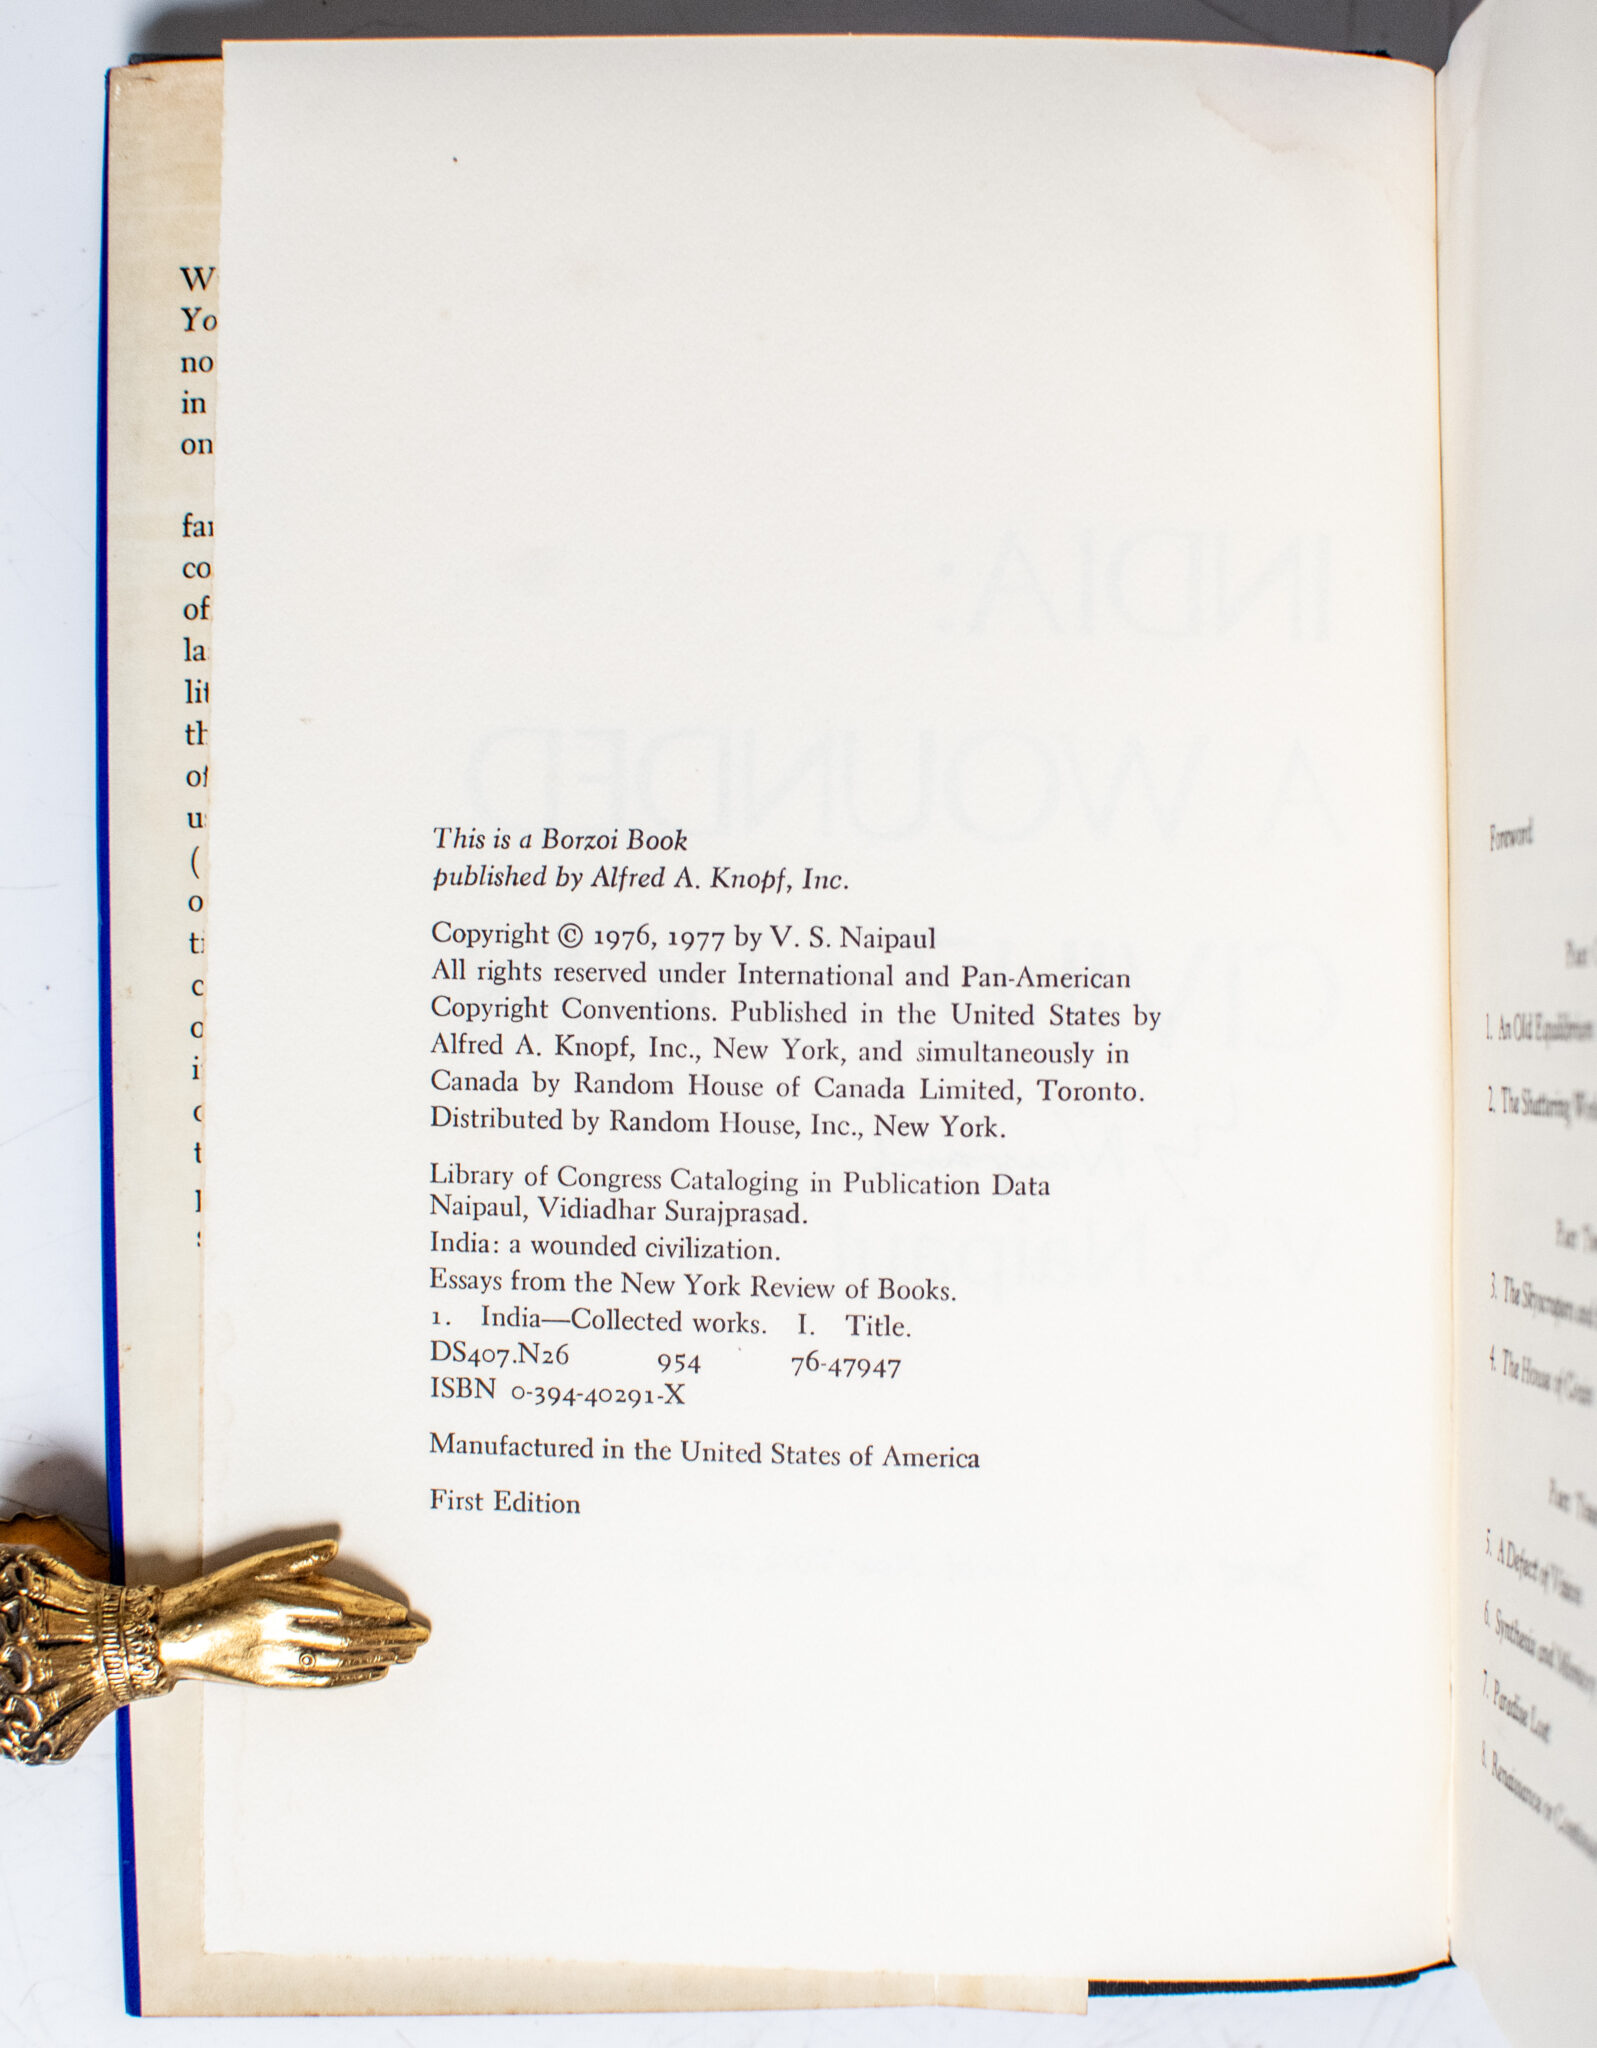 W
Yo
no
in
on
co
of
la
INDIA:
A WOUNDED
This is a Borzoi Book
published by Alfred A. Knopf, Inc.
Copyright © 1976, 1977 by V. S. Naipaul
All rights reserved under International and Pan-American
Copyright Conventions. Published in the United States by
Alfred A. Knopf, Inc., New York, and simultaneously in
Canada by Random House of Canada Limited, Toronto.
Distributed by Random House, Inc., New York.
Library of Congress Cataloging in Publication Data
Naipaul, Vidiadhar Surajprasad.
India: a wounded civilization.
Essays from the New York Review of Books.
1. India—Collected works. I. Title.
DS407.N26 954 76-47947
ISBN 0-394-40291-X
Manufactured in the United States of America
First Edition
Foreword
Part
1. An Old Equilibrium
2. The Shattering
Part
3. The Skyscrapers and
4. The House of Grain
Part
5. A Defect of Vision
6. Synthesis and Mimicry
7. Paradise Lost
8. Renaissance or